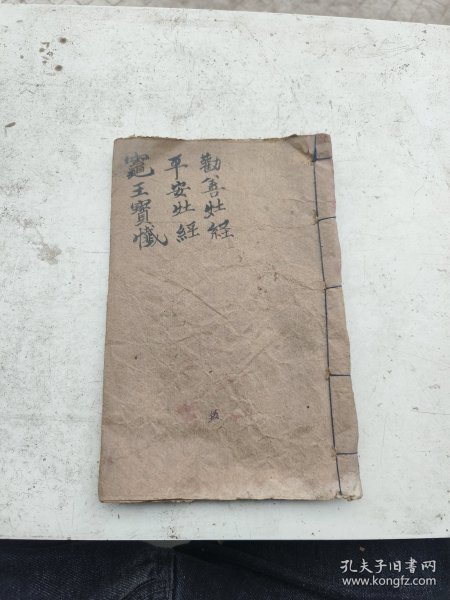 勸善灶経
平安灶經
竈王寳懺
孔夫子旧书网
www.kongfz.com